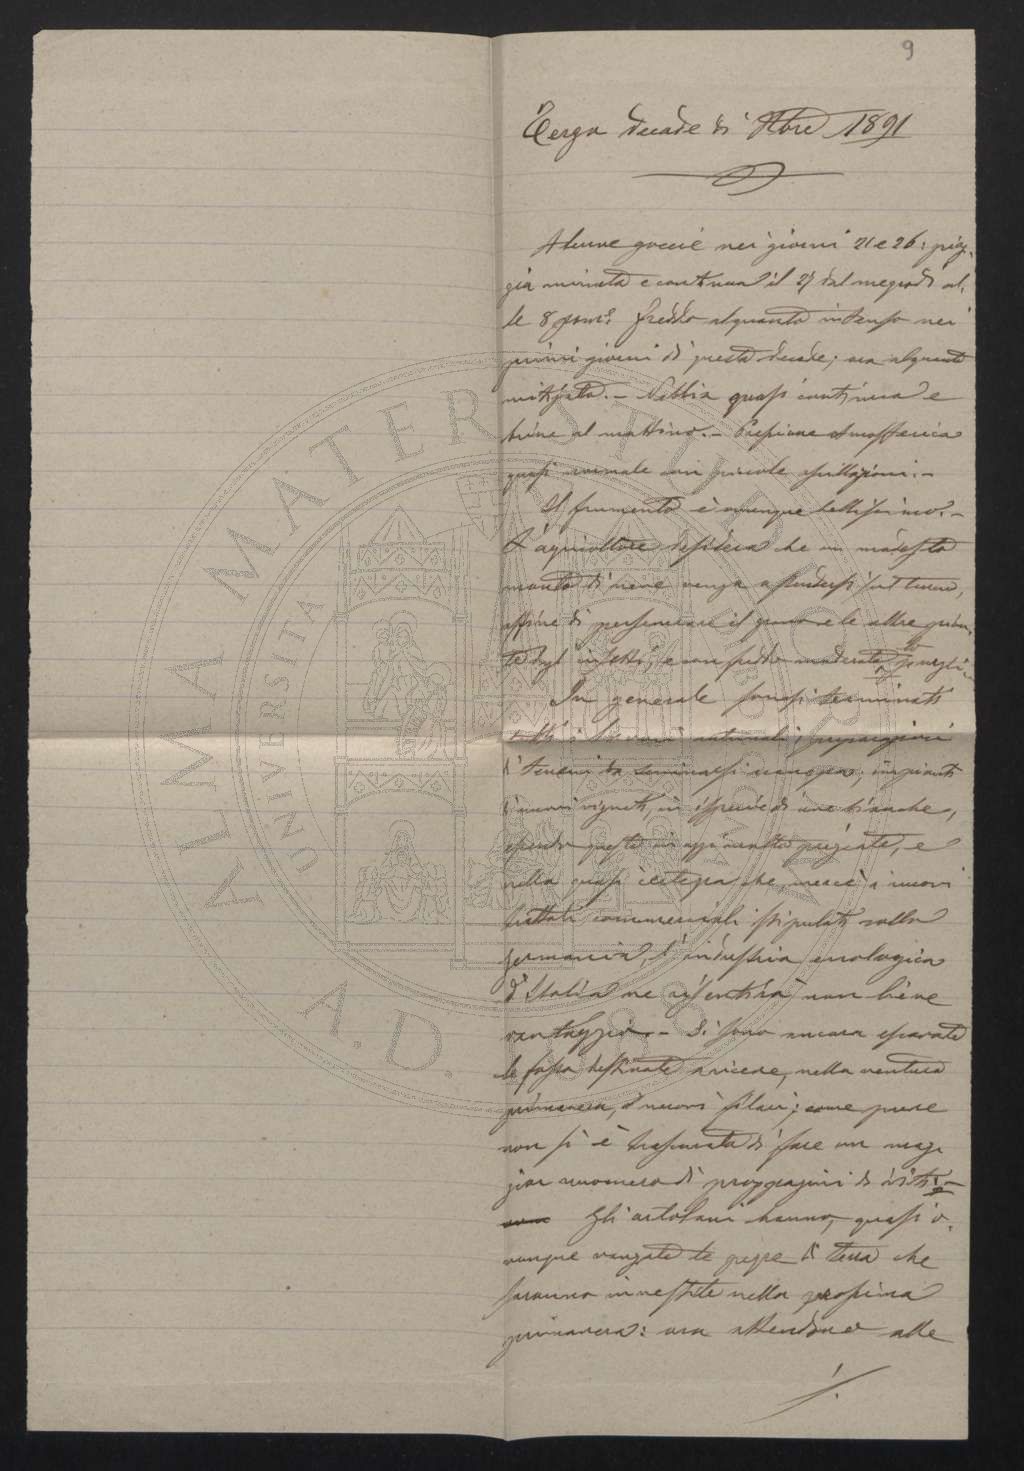 9
Terza decade di Xbre 1891
Alcune goccie nei giorni 21 e 26: piog-
gia minuta e continua il 27 dal mezzodì al-
le 8 pom. freddo alquanto intenso nei
primi giorni di questa decade; ora alquanto
mitigato. - Nebbia quasi continua e
brine al mattino. - Pressione atmosferica
quasi normale con piccole oscillazioni. -
Il frumento è ovunque bellissimo. -
L'agricoltore desidera che un modesto
manto di neve venga a stendersi sul terreno,
affine di preservare il grano e le altre pian-
te dagl'insetti, e con freddo moderato
In generale sonosi terminati
tutti i lavori autunnali; preparazioni
di terreni da seminarsi a canapa; impianti
di nuovi vigneti, in ispecie di uve bianche,
essendo queste in oggi molto pregiate, e
nella quasi certezza che, mercè i nuovi
trattati commerciali stipulati colla
Germania, l'industria enologica
d'Italia ne risentirà non lieve
vantaggio. - Si sono ancora scavate
le fosse destinate a ricevere, nella ventura
primavera, i nuovi filari; come pure
non si è trascurato di fare un mag-
gior numero di propaggini di viti. -
Gli ortolani hanno, quasi o-
vunque vangate le pezze di terra che
saranno investite nella prossima
primavera: ora attendono alle
./.
ALMA MATER STUDIORUM
UNIVERSITÀ DI BOLOGNA
A.D. 1088